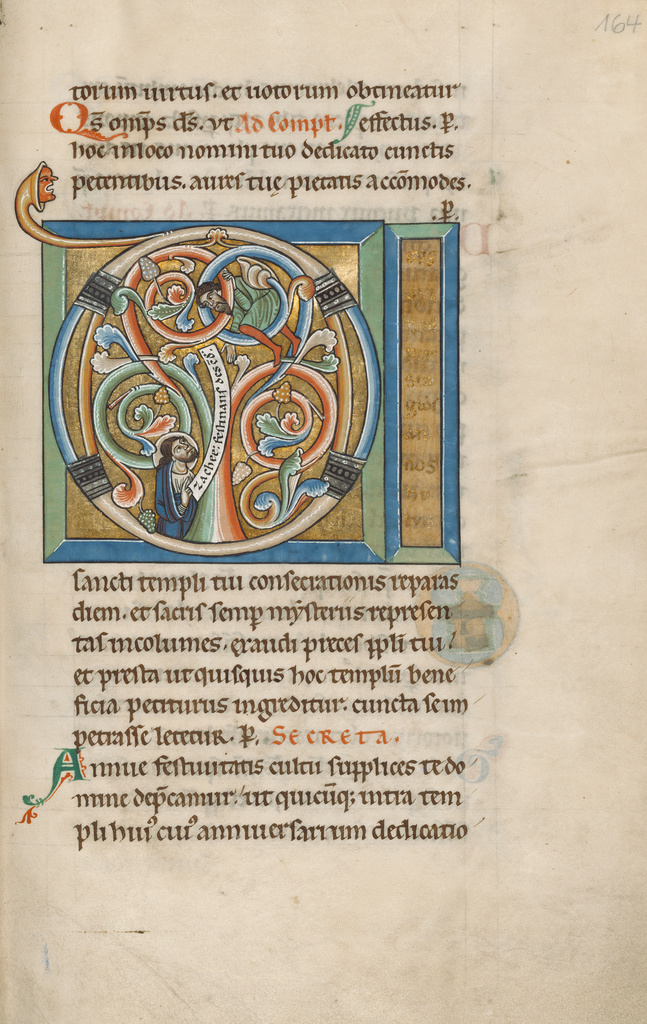 164
torum uirtus. et uotorum obtineatur
Qs omps ds. vt Ad Compl. effectus. P.
hoc in loco nomini tuo dedicato cunctis
petentibus. aures tue pietatis accōmodes.
.P.
D
zachee: festinans desce
sancti templi tui consecrationis reparas
diem. et sacris semp mẏsteriis represen
tas incolumes. exaudi preces ppli tui
et presta ut quisquis hoc templū bene
ficia petiturus ingreditur. cuncta se im
petrasse letetur. P. SECRETA.
Annue festiuitatis cultu supplices te do
mine dep̄camur. ut quicūq; intra tem
pli hui cui anniuersarium dedicatio